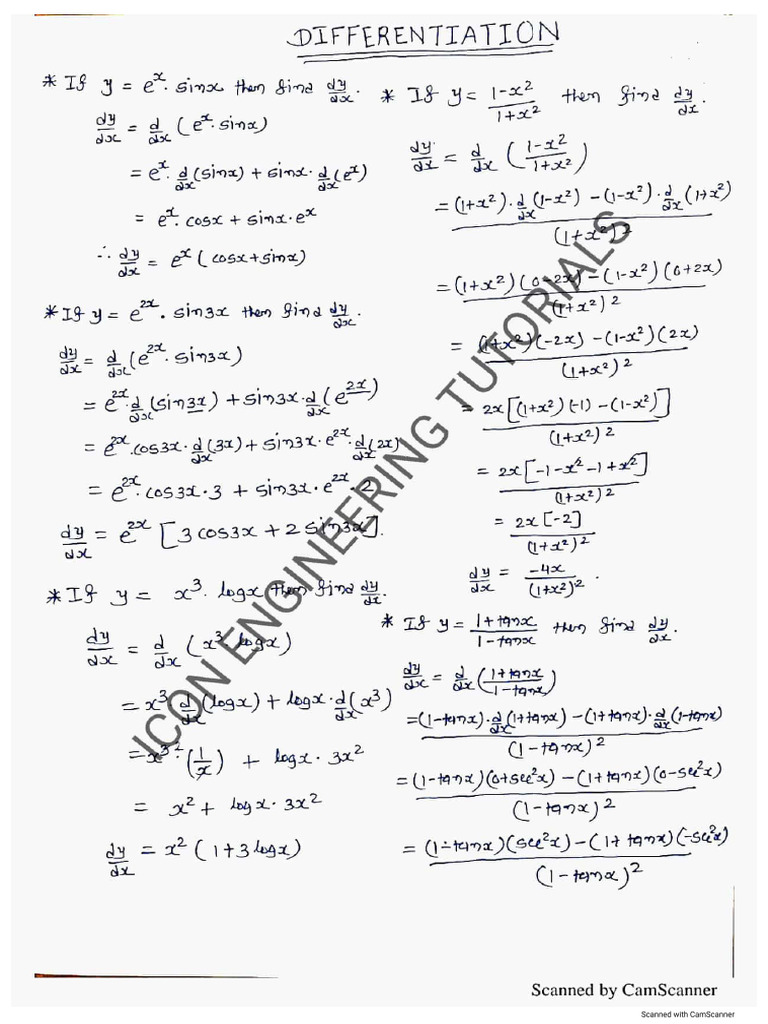 DIFFERENTIATION
* If y = e^x · sinx then find dy/dx.
dy/dx = d/dx (e^x · sinx)
= e^x · d/dx (sinx) + sinx · d/dx (e^x)
= e^x · cosx + sinx · e^x
∴ dy/dx = e^x (cosx + sinx)
* If y = e^2x · sin3x then find dy/dx.
dy/dx = d/dx (e^2x · sin3x)
= e^2x · d/dx (sin3x) + sin3x · d/dx (e^2x)
= e^2x · cos3x · d/dx (3x) + sin3x · e^2x · d/dx (2x)
= e^2x · cos3x · 3 + sin3x · e^2x · 2
dy/dx = e^2x [3 cos3x + 2 sin3x].
* If y = x^3 · logx then find dy/dx.
dy/dx = d/dx (x^3 · logx)
= x^3 · d/dx (logx) + logx · d/dx (x^3)
= x^3 · (1/x) + logx · 3x^2
= x^2 + logx · 3x^2
dy/dx = x^2 (1 + 3 logx)
* If y = (1-x^2)/(1+x^2) then find dy/dx.
dy/dx = d/dx ((1-x^2)/(1+x^2))
= ((1+x^2) · d/dx (1-x^2) - (1-x^2) · d/dx (1+x^2))/(1+x^2)^2
= ((1+x^2)(0-2x) - (1-x^2)(0+2x))/(1+x^2)^2
= ((1+x^2)(-2x) - (1-x^2)(2x))/(1+x^2)^2
= 2x[(1+x^2)(-1) - (1-x^2)]/(1+x^2)^2
= 2x[-1-x^2-1+x^2]/(1+x^2)^2
= 2x[-2]/(1+x^2)^2
dy/dx = -4x/(1+x^2)^2.
* If y = (1+tanx)/(1-tanx) then find dy/dx.
dy/dx = d/dx ((1+tanx)/(1-tanx))
= ((1-tanx) · d/dx (1+tanx) - (1+tanx) · d/dx (1-tanx))/(1-tanx)^2
= ((1-tanx)(0+sec^2x) - (1+tanx)(0-sec^2x))/(1-tanx)^2
= ((1-tanx)(sec^2x) - (1+tanx)(-sec^2x))/(1-tanx)^2
ICON ENGINEERING TUTORIALS
Scanned by CamScanner
Scanned with CamScanner